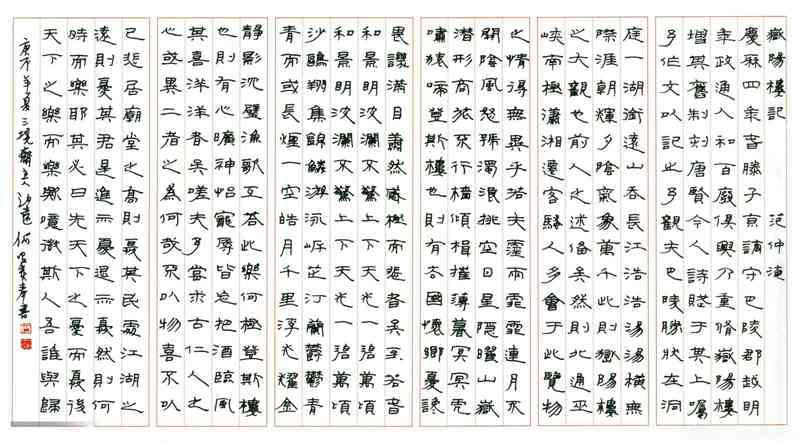 嶽陽樓記 范仲淹
慶曆四年春滕子京謫守巴陵郡越明
年政通人和百廢俱興乃重脩嶽陽樓
增其舊制刻唐賢今人詩賦于其上囑
予作文以記之予觀夫巴陵勝狀在洞
庭一湖銜遠山吞長江浩浩湯湯橫無
際涯朝暉夕陰氣象萬千此則嶽陽樓
之大觀也前人之述備矣然則北通巫
峽南極瀟湘遷客騷人多會于此覽物
之情得無異乎若夫霪雨霏霏連月不
開陰風怒號濁浪排空日星隱曜山嶽
潛形商旅不行檣傾楫摧薄暮冥冥虎
嘯猿啼登斯樓也則有去國懷鄉憂讒
畏譏滿目蕭然感極而悲者矣至若春
和景明波瀾不驚上下天光一碧萬頃
和景明波瀾不驚上下天光一碧萬頃
沙鷗翔集錦鱗游泳岸芷汀蘭鬱鬱青
青而或長煙一空皓月千里浮光耀金
靜影沉璧漁歌互答此樂何極登斯樓
也則有心曠神怡寵辱皆忘把酒臨風
其喜洋洋者矣嗟夫予嘗求古仁人之
心或異二者之為何哉不以物喜不以
己悲居廟堂之高則憂其民處江湖之
遠則憂其君是進亦憂退亦憂然則何
時而樂耶其必曰先天下之憂而憂後
天下之樂而樂歟噫微斯人吾誰與歸
年夏